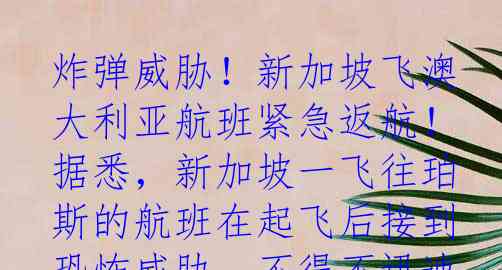 炸弹威胁！新加坡飞澳
大利亚航班紧急返航！
据悉，新加坡一飞往珀
斯的航班在起飞后接到
恐怖威胁，不得不迅速